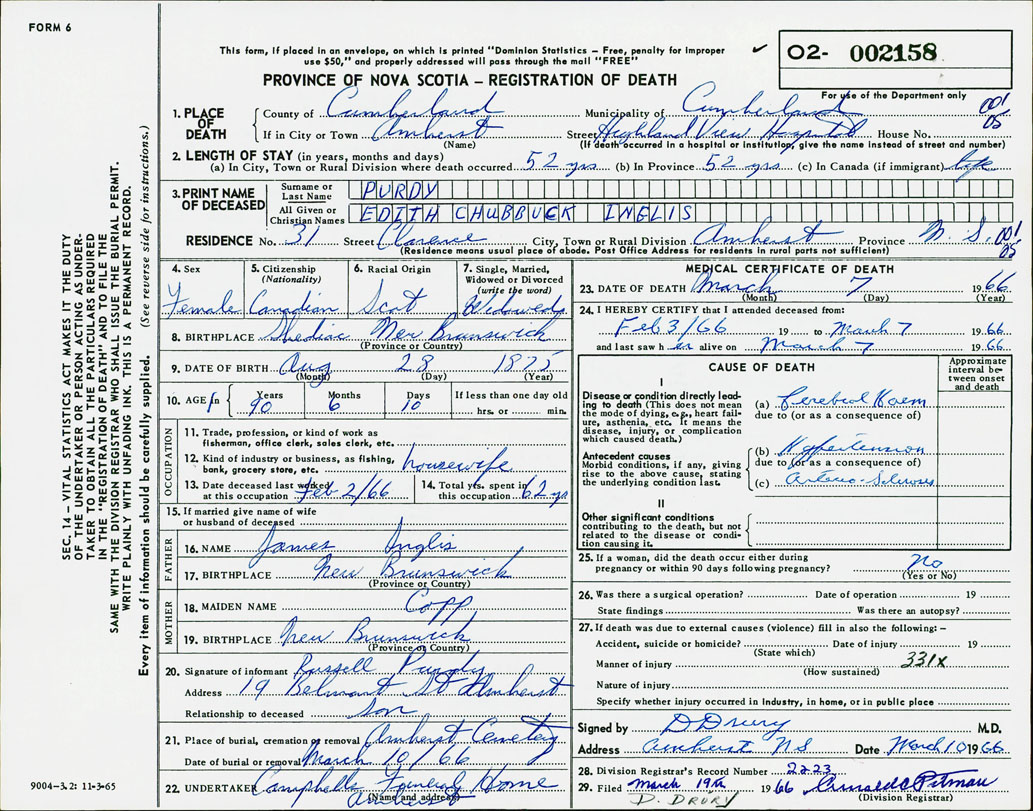 FORM 6
This form, if placed in an envelope, on which is printed "Dominion Statistics – Free, penalty for improper
use $50," and properly addressed will pass through the mail "FREE"
✓ 02- 002158
PROVINCE OF NOVA SCOTIA – REGISTRATION OF DEATH
For use of the Department only
1. PLACE OF DEATH County of Cumberland Municipality of Cumberland 001
If in City or Town Amherst Street Highland View Hospital House No. 05
(Name) (If death occurred in a hospital or institution, give the name instead of street and number)
2. LENGTH OF STAY (in years, months and days)
(a) In City, Town or Rural Division where death occurred 52 yrs (b) In Province 52 yrs (c) In Canada (if immigrant) life
3. PRINT NAME OF DECEASED Surname or Last Name PURDY
All Given or Christian Names EDITH CHUBBUCK INGLIS
RESIDENCE No. 31 Street Clarence City, Town or Rural Division Amherst Province N.S. 001
(Residence means usual place of abode. Post Office Address for residents in rural parts not sufficient) 05
4. Sex Female
5. Citizenship (Nationality) Canadian
6. Racial Origin Scot
7. Single, Married, Widowed or Divorced (write the word) Widowed
8. BIRTHPLACE Shediac New Brunswick
(Province or Country)
9. DATE OF BIRTH Aug 28 1875
(Month) (Day) (Year)
10. AGE in Years 90 Months 6 Days 10 If less than one day old
hrs. or min.
OCCUPATION
11. Trade, profession, or kind of work as
fisherman, office clerk, sales clerk, etc.
12. Kind of industry or business, as fishing,
bank, grocery store, etc. housewife
13. Date deceased last worked
at this occupation Feb 2/66
14. Total yrs. spent in
this occupation 62 yrs
15. If married give name of wife
or husband of deceased
FATHER
16. NAME James Inglis
17. BIRTHPLACE New Brunswick
(Province or Country)
MOTHER
18. MAIDEN NAME Copp
19. BIRTHPLACE New Brunswick
(Province or Country)
20. Signature of informant Russell Purdy
Address 19 Belmont St Amherst
Relationship to deceased son
21. Place of burial, cremation or removal Amherst Cemetery
Date of burial or removal March 10/66
22. UNDERTAKER Campbells Funeral Home
(Name and address) Amherst
MEDICAL CERTIFICATE OF DEATH
23. DATE OF DEATH March 7 1966
(Month) (Day) (Year)
24. I HEREBY CERTIFY that I attended deceased from:
Feb 3/66 19 to March 7 1966
and last saw her alive on March 7 1966
CAUSE OF DEATH
Approximate interval between onset and death
I
Disease or condition directly leading to death (This does not mean
the mode of dying, e.g., heart failure, asthenia, etc. It means the
disease, injury, or complication
which caused death.)
(a) Cerebral Haem
due to (or as a consequence of)
Antecedent causes
Morbid conditions, if any, giving
rise to the above cause, stating
the underlying condition last.
(b) Hypertension
due to (or as a consequence of)
(c) Arterio-Sclerosis
II
Other significant conditions
contributing to the death, but not
related to the disease or condition causing it.
25. If a woman, did the death occur either during
pregnancy or within 90 days following pregnancy? No
(Yes or No)
26. Was there a surgical operation? Date of operation 19
State findings Was there an autopsy?
27. If death was due to external causes (violence) fill in also the following: –
Accident, suicide or homicide? Date of injury 19
(State which)
Manner of injury 331X
(How sustained)
Nature of injury
Specify whether injury occurred in Industry, in home, or in public place
Signed by D Drury M.D.
Address Amherst NS Date March 10 1966
28. Division Registrar's Record Number 2223
29. Filed March 19th 1966 Pitman
D. DRURY (Division Registrar)
SEC. 14 – VITAL STATISTICS ACT MAKES IT THE DUTY
OF THE UNDERTAKER OR PERSON ACTING AS UNDER-
TAKER TO OBTAIN ALL THE PARTICULARS REQUIRED
IN THE "REGISTRATION OF DEATH" AND TO FILE THE
SAME WITH THE DIVISION REGISTRAR WHO SHALL ISSUE THE BURIAL PERMIT.
WRITE PLAINLY WITH UNFADING INK. THIS IS A PERMANENT RECORD.
Every item of information should be carefully supplied. (See reverse side for instructions.)
9004-3.2: 11-3-65